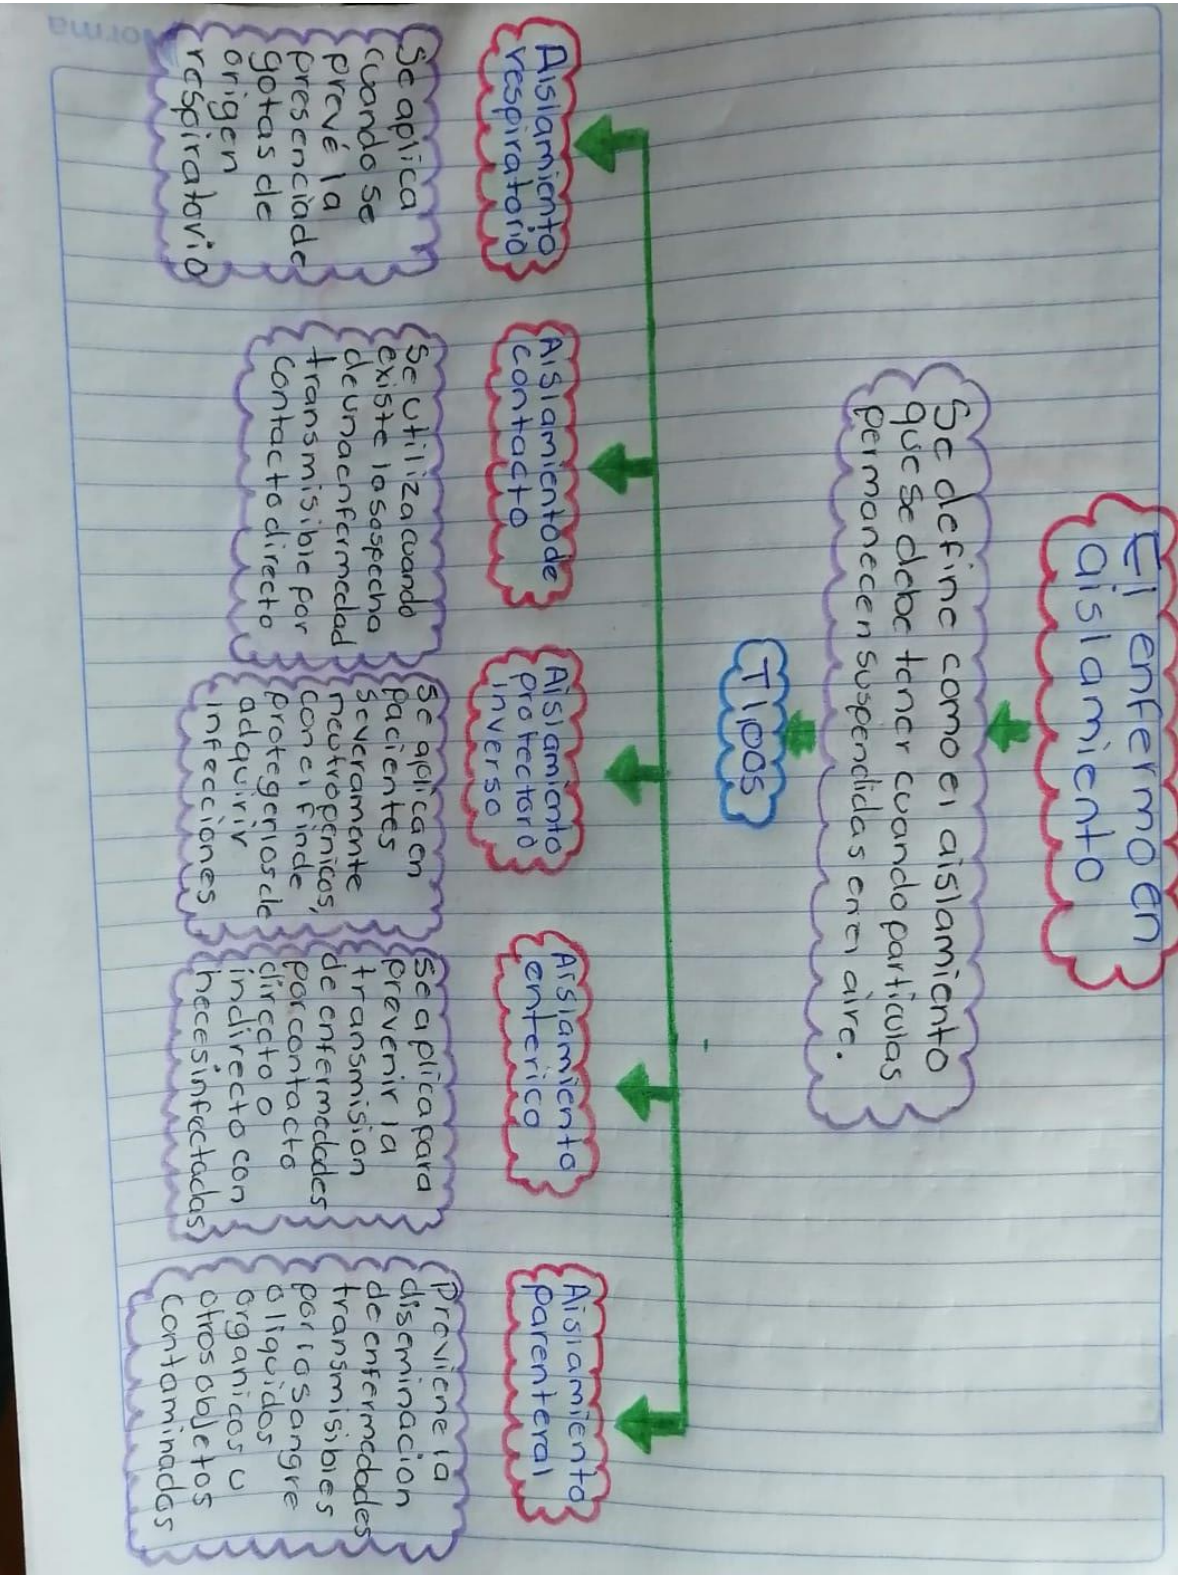 El enfermo en
aislamiento
Se define como el aislamiento
que se debe tener cuando particulas
permanecen suspendidas en el aire.
Tipos
Aislamiento
respiratorio
Se aplica
cuando se
prevé la
presencia de
gotas de
origen
respiratorio
Aislamiento de
contacto
Se utiliza cuando
existe la sospecha
de una enfermedad
transmisible por
contacto directo
Aislamiento
protectoro
inverso
Se aplica en
pacientes
severamente
neutropénicos,
con el fin de
protegerlos de
adquirir
infecciones
Aislamiento
enterico
Se aplica para
prevenir la
transmision
de enfermedades
por contacto
directo o
indirecto con
hecesinfectadas
Aislamiento
parenteral
Proviene la
diseminacion
de enfermedades
transmisibles
por la sangre
o liquidos
organicos u
otros objetos
contaminados
Norma